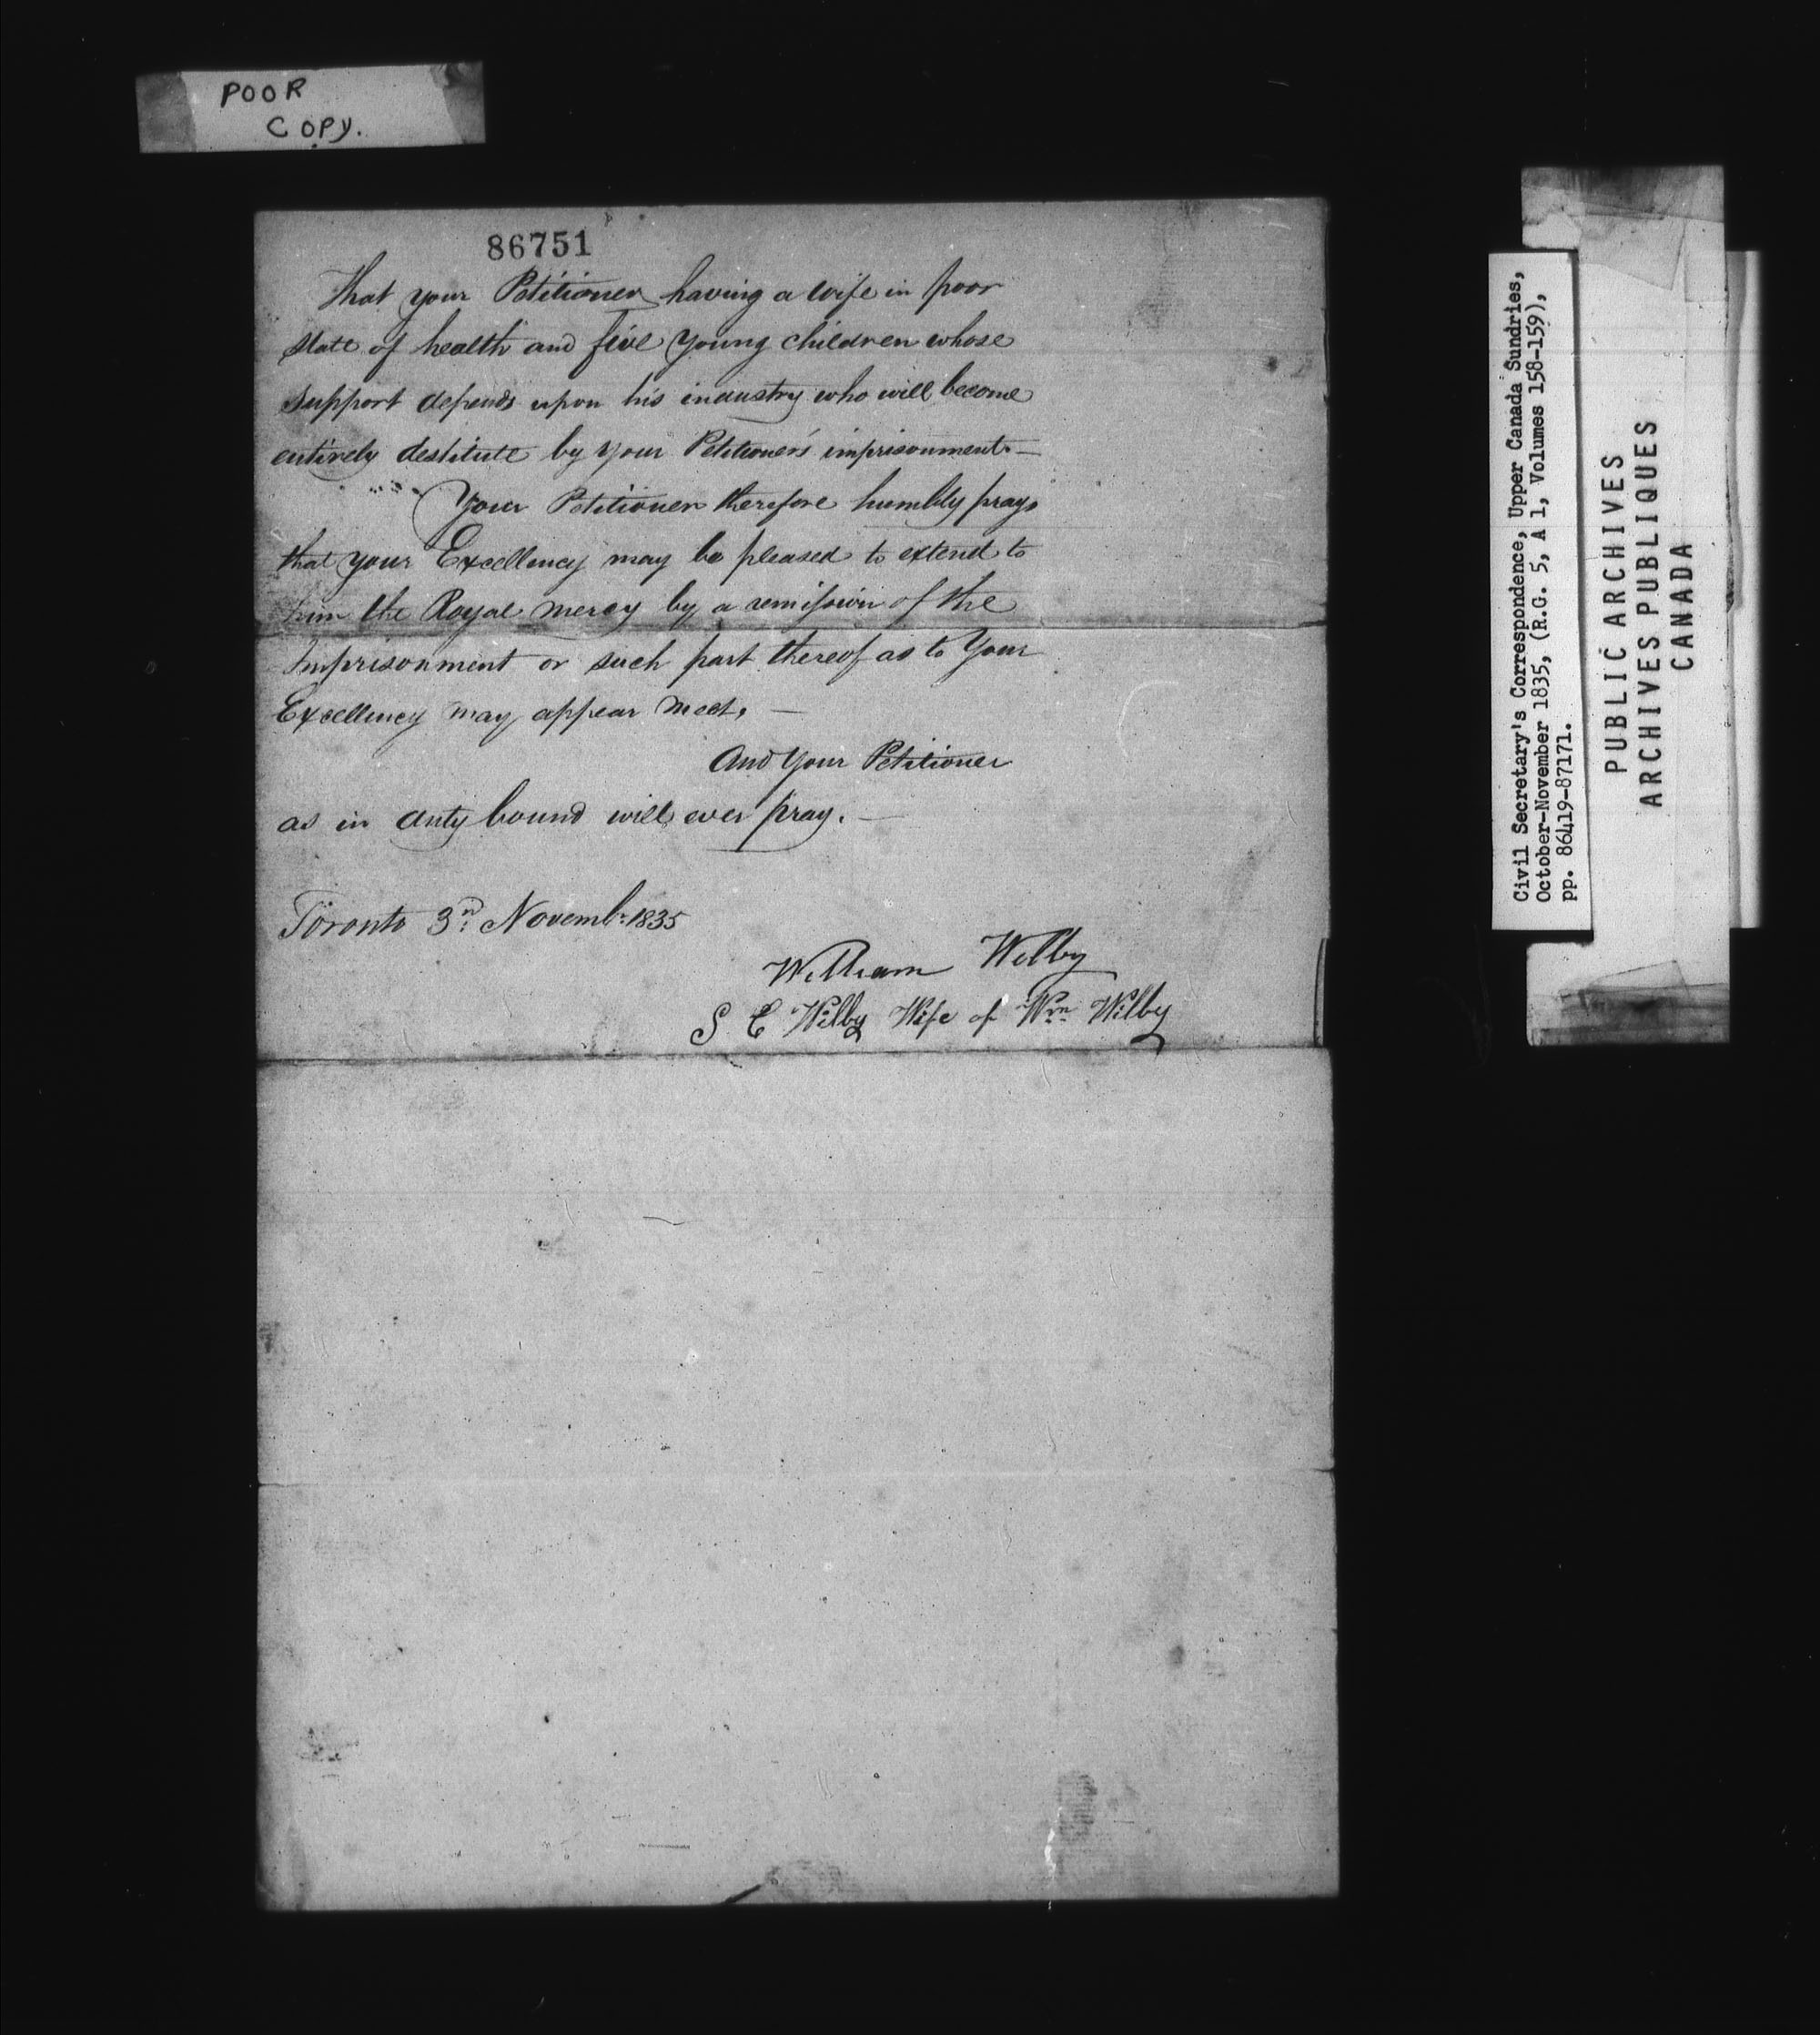 POOR
COPY.
86751
That your Petitioner having a wife in poor
state of health and five young children whose
support depends upon his industry who will become
entirely destitute by your Petitioner's imprisonment. —
Your Petitioner therefore humbly prays
that your Excellency may be pleased to extend to
him the Royal mercy by a remission of the
Imprisonment or such part thereof as to Your
Excellency may appear meet. —
And Your Petitioner
as in duty bound will ever pray. —
Toronto 3rd Novembr 1835
William Wilby
S E Wilby Wife of Wm Wilby
Civil Secretary's Correspondence, Upper Canada Sundries,
October-November 1835, (R.G. 5, A 1, Volumes 158-159),
pp. 86419-87171.
PUBLIC ARCHIVES
ARCHIVES PUBLIQUES
CANADA